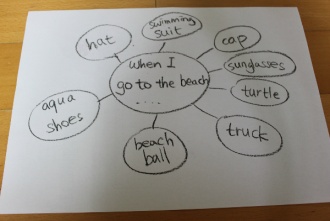 hat
swimming
suit
cap
sunglasses
turtle
truck
beach
ball
aqua
shoes
When I
go to the beach
....